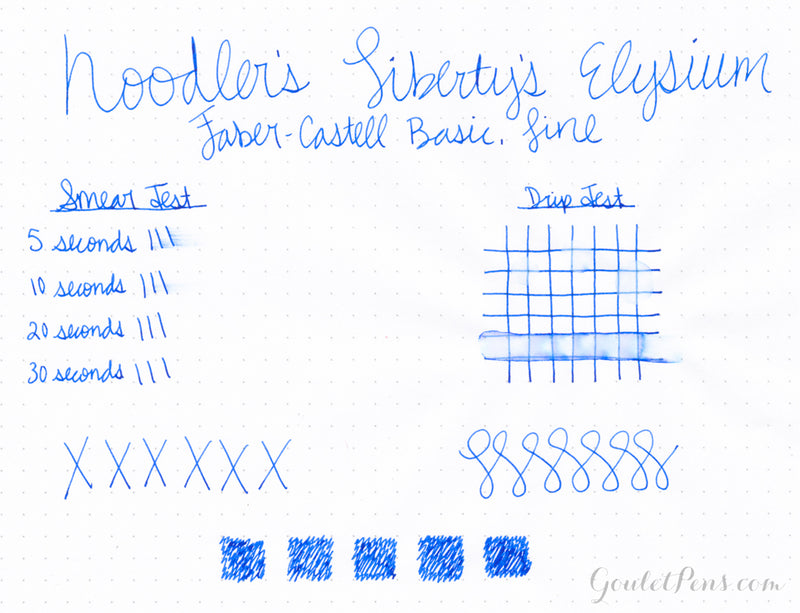 Noodler's Liberty's Elysium
Faber-Castell Basic, fine
Smear Test
5 seconds
10 seconds
20 seconds
30 seconds
Drip Test
X X X X X X
GouletPens.com